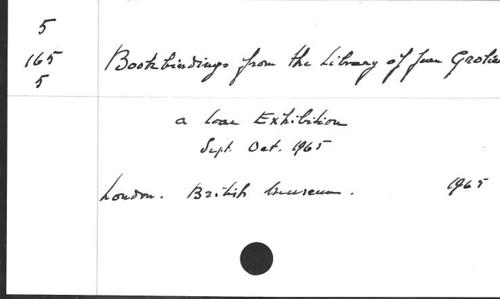 5
165
5
Bookbindings from the Library of Jean Grolie
a Loan Exhibition
Sept. Oct. 1965
London. British Museum. 1965